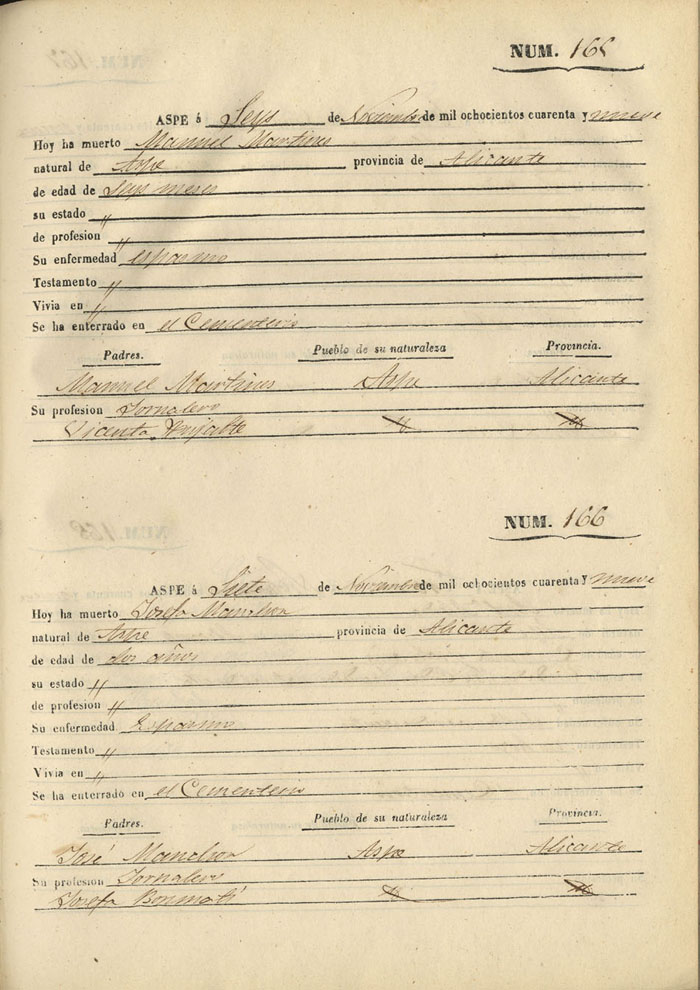 NUM. 165
ASPE á Seys de Noviembre de mil ochocientos cuarenta y nueve
Hoy ha muerto Manuel Martines
natural de Aspe provincia de Alicante
de edad de seys meses
su estado "
de profesion "
Su enfermedad espasmo
Testamento "
Vivia en "
Se ha enterrado en el Cementerio
Padres. Pueblo de su naturaleza Provincia.
Manuel Martines Aspe Alicante
Su profesion Jornalero
Vicenta
NUM. 166
ASPE á Siete de Noviembre de mil ochocientos cuarenta y nueve
Hoy ha muerto Josefa Manchon
natural de Aspe provincia de Alicante
de edad de dos años
su estado "
de profesion "
Su enfermedad Espasmo
Testamento "
Vivia en "
Se ha enterrado en el Cementerio
Padres. Pueblo de su naturaleza Provincia.
José Manchon Aspe Alicante
Su profesion Jornalero
Josefa Bonmati